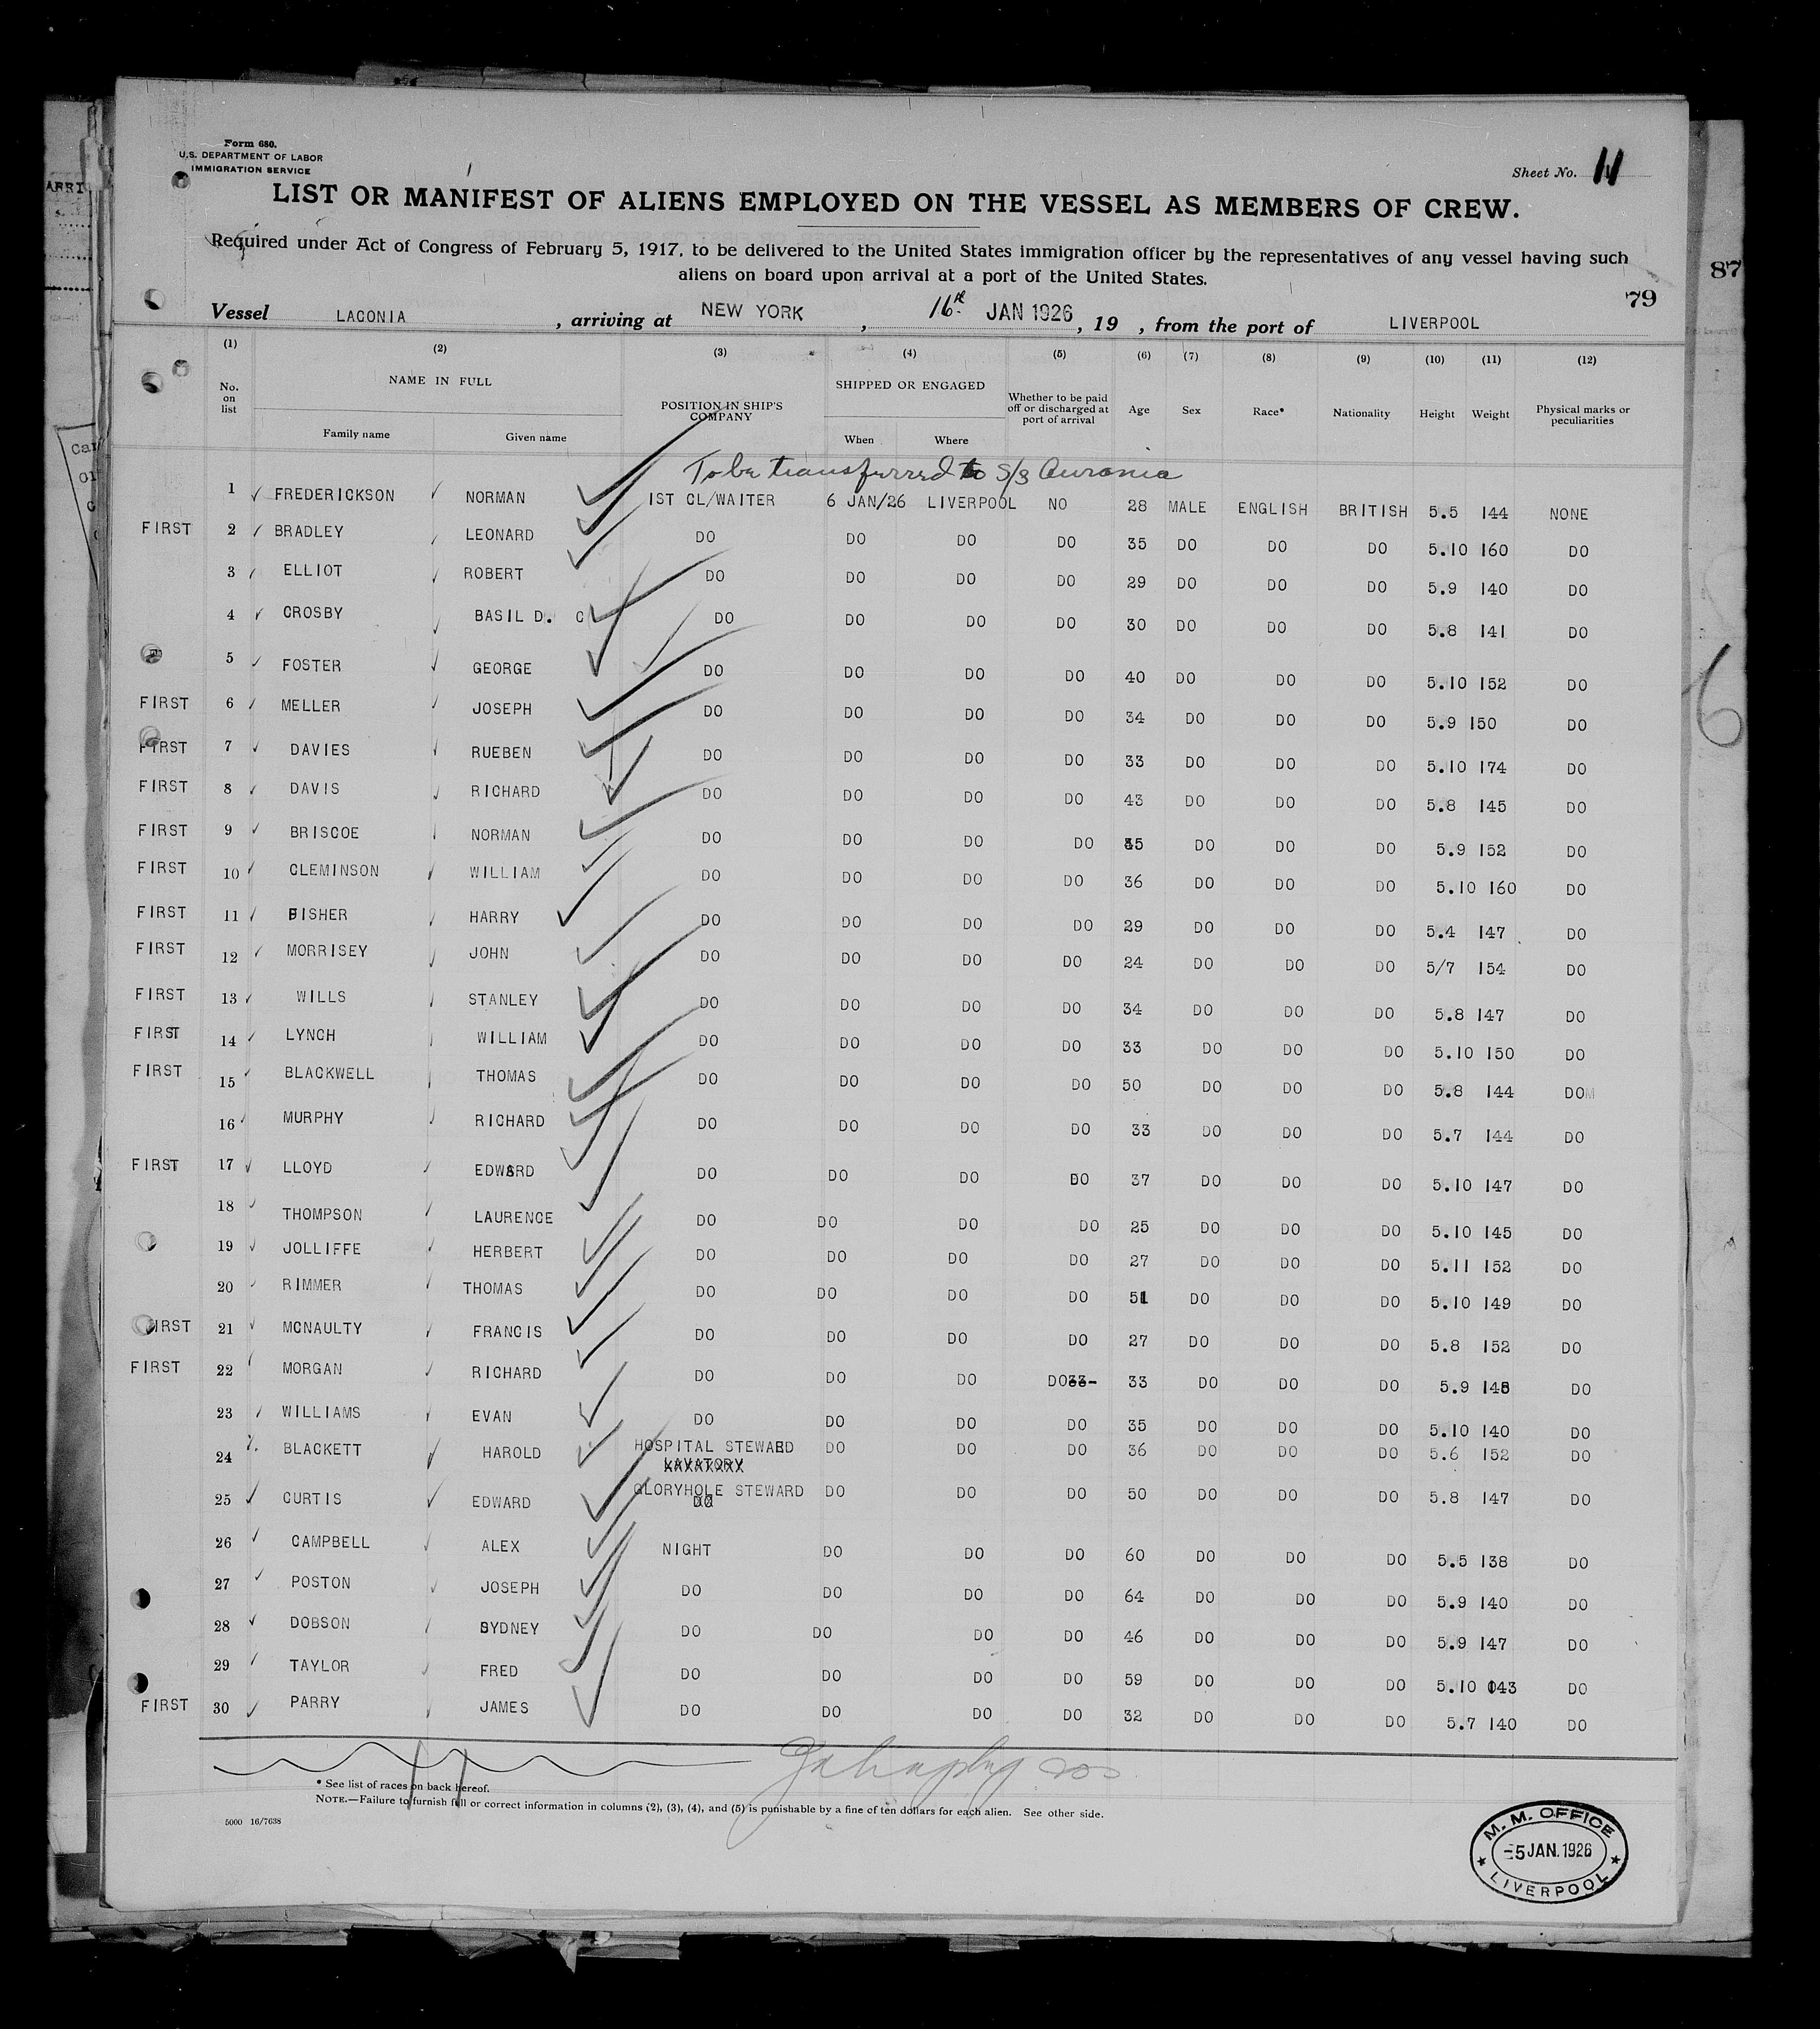 Form 680.
U.S. DEPARTMENT OF LABOR
IMMIGRATION SERVICE
Sheet No. 11
LIST OR MANIFEST OF ALIENS EMPLOYED ON THE VESSEL AS MEMBERS OF CREW.
Required under Act of Congress of February 5, 1917, to be delivered to the United States immigration officer by the representatives of any vessel having such
aliens on board upon arrival at a port of the United States.
87
79
Vessel LACONIA , arriving at NEW YORK , 16th JAN 1926 , 19 , from the port of LIVERPOOL
(1) (2) (3) (4) (5) (6) (7) (8) (9) (10) (11) (12)
No. on list NAME IN FULL Family name Given name POSITION IN SHIP'S COMPANY SHIPPED OR ENGAGED When Where Whether to be paid off or discharged at port of arrival Age Sex Race* Nationality Height Weight Physical marks or peculiarities
To be transferred to S/S Aurania
1 FREDERICKSON NORMAN 1ST CL/WAITER 6 JAN/26 LIVERPOOL NO 28 MALE ENGLISH BRITISH 5.5 144 NONE
FIRST 2 BRADLEY LEONARD DO DO DO DO 35 DO DO DO 5.10 160 DO
3 ELLIOT ROBERT DO DO DO DO 29 DO DO DO 5.9 140 DO
4 CROSBY BASIL D. C DO DO DO DO 30 DO DO DO 5.8 141 DO
5 FOSTER GEORGE DO DO DO DO 40 DO DO DO 5.10 152 DO
FIRST 6 MELLER JOSEPH DO DO DO DO 34 DO DO DO 5.9 150 DO
FIRST 7 DAVIES RUEBEN DO DO DO DO 33 DO DO DO 5.10 174 DO
FIRST 8 DAVIS RICHARD DO DO DO DO 43 DO DO DO 5.8 145 DO
FIRST 9 BRISCOE NORMAN DO DO DO DO DO DO DO 5.9 152 DO
FIRST 10 CLEMINSON WILLIAM DO DO DO DO 36 DO DO DO 5.10 160 DO
FIRST 11 FISHER HARRY DO DO DO DO 29 DO DO DO 5.4 147 DO
FIRST 12 MORRISEY JOHN DO DO DO DO 24 DO DO DO 5/7 154 DO
FIRST 13 WILLS STANLEY DO DO DO DO 34 DO DO DO 5.8 147 DO
FIRST 14 LYNCH WILLIAM DO DO DO DO 33 DO DO DO 5.10 150 DO
FIRST 15 BLACKWELL THOMAS DO DO DO DO 50 DO DO DO 5.8 144 DO
16 MURPHY RICHARD DO DO DO DO 33 DO DO DO 5.7 144 DO
FIRST 17 LLOYD EDWARD DO DO DO DO 37 DO DO DO 5.10 147 DO
18 THOMPSON LAURENCE DO DO DO DO 25 DO DO DO 5.10 145 DO
19 JOLLIFFE HERBERT DO DO DO DO 27 DO DO DO 5.11 152 DO
20 RIMMER THOMAS DO DO DO DO 51 DO DO DO 5.10 149 DO
FIRST 21 MCNAULTY FRANCIS DO DO DO DO 27 DO DO DO 5.8 152 DO
FIRST 22 MORGAN RICHARD DO DO DO DO 33- 33 DO DO DO 5.9 148 DO
23 WILLIAMS EVAN DO DO DO DO 35 DO DO DO 5.10 140 DO
24 BLACKETT HAROLD HOSPITAL STEWARD DO DO DO 36 DO DO DO 5.6 152 DO
LAVATORY
25 CURTIS EDWARD GLORYHOLE STEWARD DO DO DO 50 DO DO DO 5.8 147 DO
DO
26 CAMPBELL ALEX NIGHT DO DO DO 60 DO DO DO 5.5 138 DO
27 POSTON JOSEPH DO DO DO DO 64 DO DO DO 5.9 140 DO
28 DOBSON SYDNEY DO DO DO DO 46 DO DO DO 5.9 147 DO
29 TAYLOR FRED DO DO DO DO 59 DO DO DO 5.10 DO
FIRST 30 PARRY JAMES DO DO DO DO 32 DO DO DO 5.7 140 DO
* See list of races on back hereof.
NOTE.—Failure to furnish full or correct information in columns (2), (3), (4), and (5) is punishable by a fine of ten dollars for each alien. See other side.
5000 16/7638
M. M. OFFICE
-5 JAN. 1926
LIVERPOOL